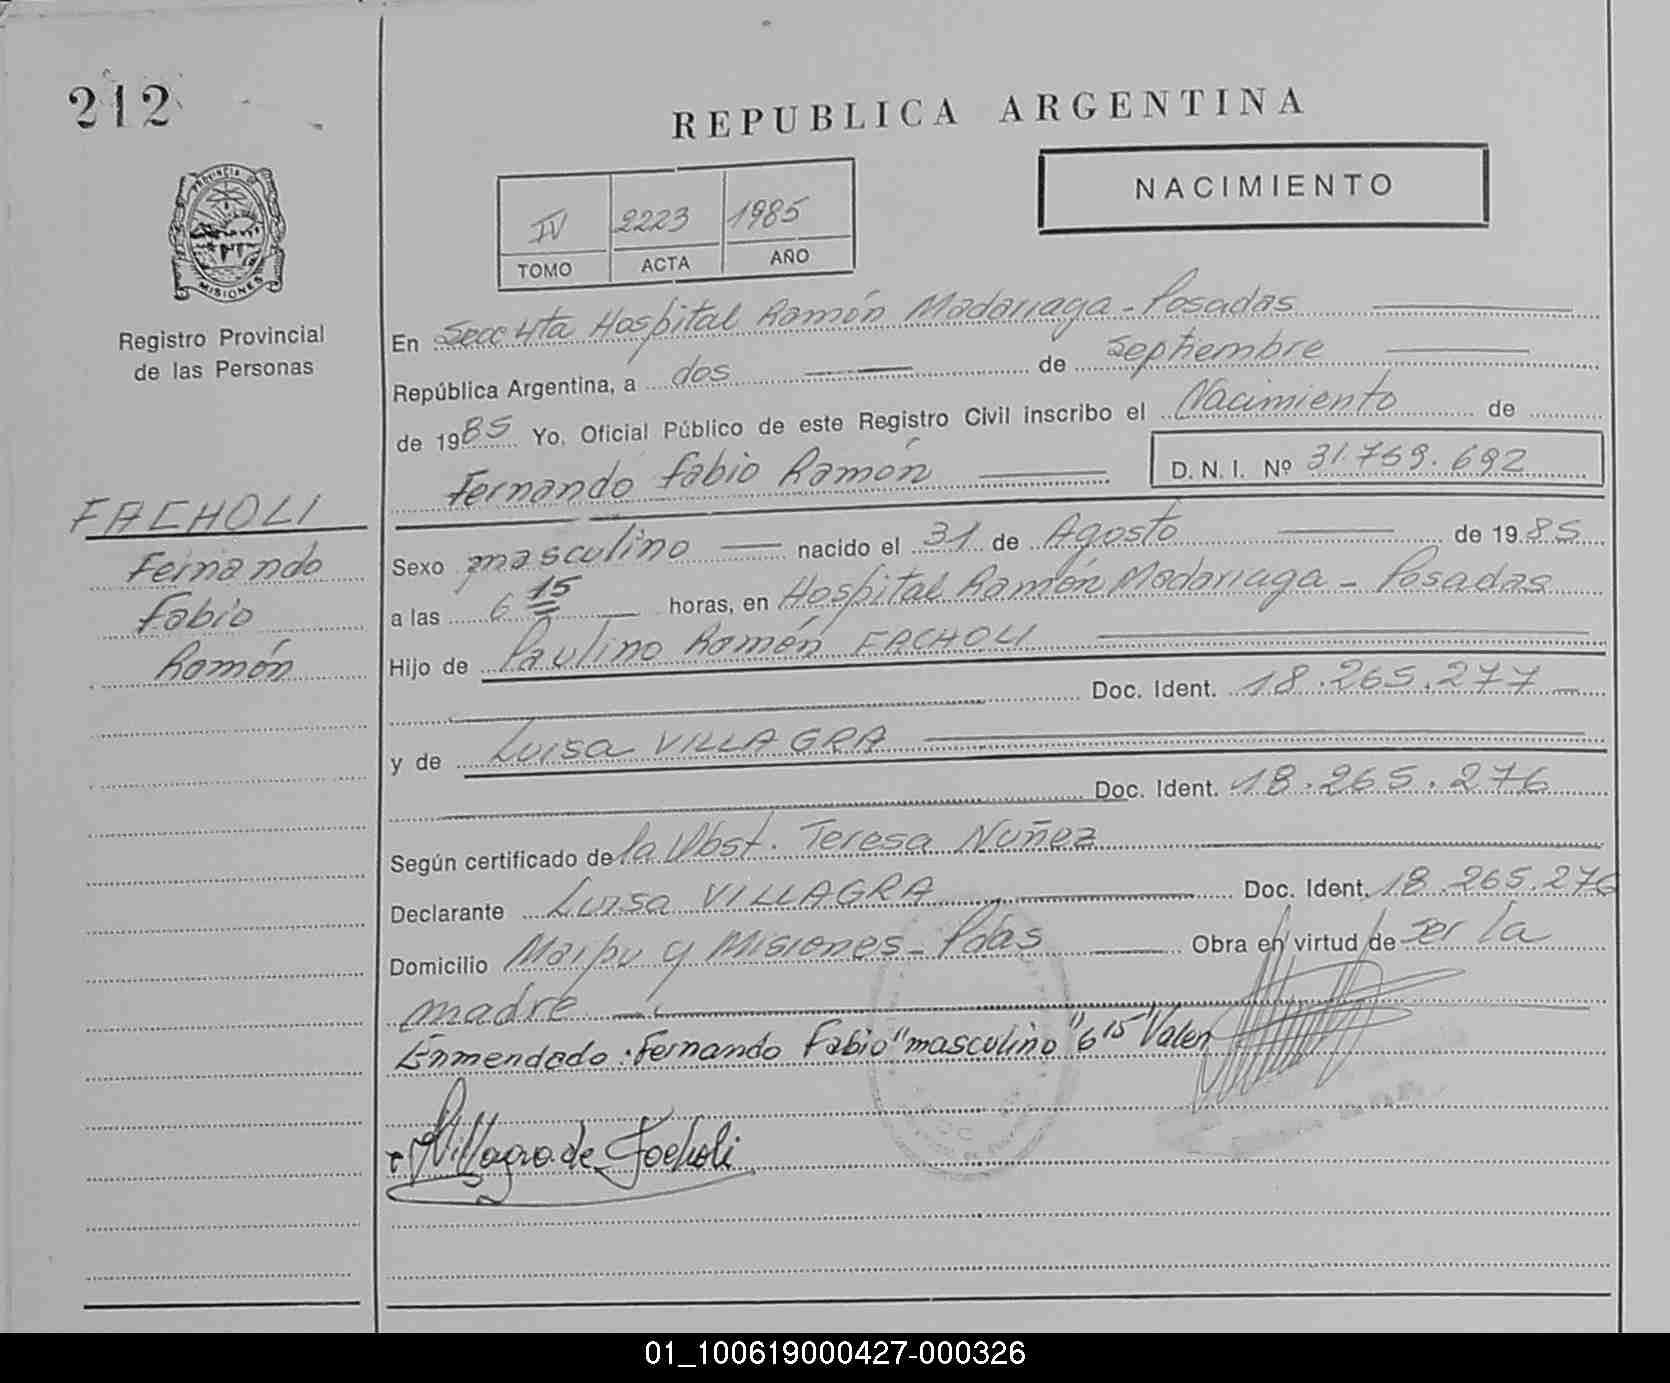 212
REPUBLICA ARGENTINA
NACIMIENTO
IV 2223 1985
TOMO ACTA AÑO
PROVINCIA DE
MISIONES
Registro Provincial
de las Personas
En Secc 4ta Hospital Ramón Madariaga - Posadas
República Argentina, a dos de Septiembre
de 1985 Yo, Oficial Público de este Registro Civil inscribo el Nacimiento de
Fernando Fabio Ramón D. N. I. Nº 31.769.692
FACHOLI
Fernando
Fabio
Ramón
Sexo masculino nacido el 31 de Agosto de 1985
a las 6 15 horas, en Hospital Ramón Madariaga - Posadas
Hijo de Paulino Ramón FACHOLI
Doc. Ident. 18.265.277
y de Luisa VILLAGRA
Doc. Ident. 18.265.276
Según certificado de la Obst. Teresa Nuñez
Declarante Luisa VILLAGRA Doc. Ident. 18.265.276
Domicilio Maipu y Misiones - Pdas Obra en virtud de ser la
madre
Enmendado: Fernando Fabio "masculino" 6 15 "Valen
Villagra de Facholi
01_100619000427-000326